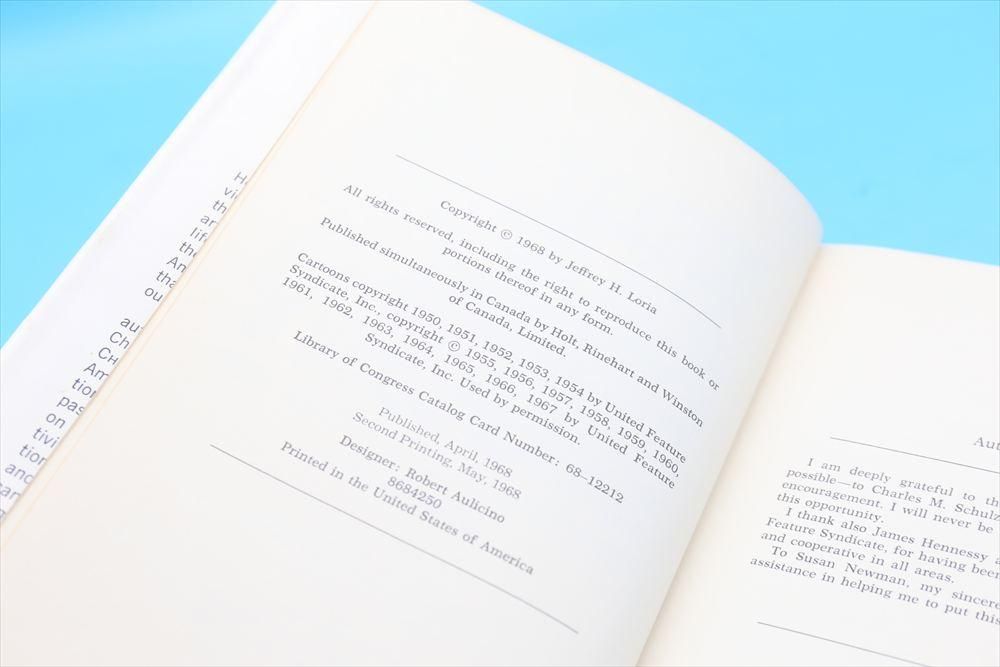 H
vi
th
ar
lif
the
An
tha
ou
au
Ch
CH
Am
tion
pas
on
tivi
tion
and
can
Copyright © 1968 by Jeffrey H. Loria
All rights reserved, including the right to reproduce this book or
portions thereof in any form.
Published simultaneously in Canada by Holt, Rinehart and Winston
of Canada, Limited.
Cartoons copyright 1950, 1951, 1952, 1953, 1954 by United Feature
Syndicate, Inc., copyright © 1955, 1956, 1957, 1958, 1959, 1960,
1961, 1962, 1963, 1964, 1965, 1966, 1967 by United Feature
Syndicate, Inc. Used by permission.
Library of Congress Catalog Card Number: 68-12212
Published, April, 1968
Second Printing, May, 1968
Designer: Robert Aulicino
8684250
Printed in the United States of America
Aut
I am deeply grateful to th
possible—to Charles M. Schulz
encouragement. I will never be
this opportunity.
I thank also James Hennessy a
Feature Syndicate, for having been
and cooperative in all areas.
To Susan Newman, my sincere
assistance in helping me to put this